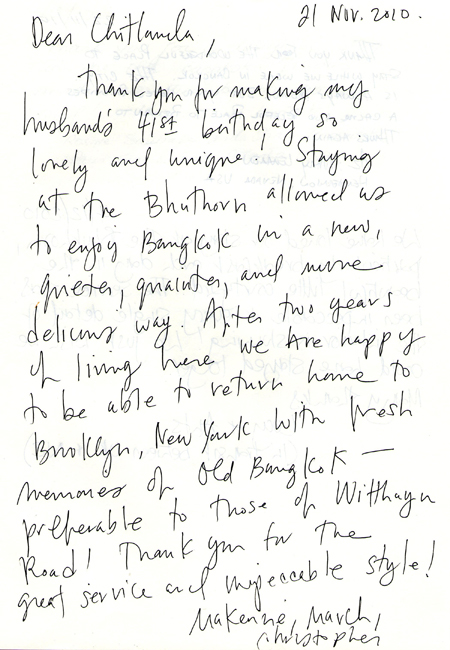 21 Nov. 2010.
Dear Chitlanda,
Thank you for making my
husband's 41st birthday so
lovely and unique! Staying
at the Bhuthorn allowed us
to enjoy Bangkok in a new,
quieter, quainter, and more
delicious way. After two years
of living here we are happy
to be able to return home to
Brooklyn, New York with fresh
memories of Old Bangkok —
preferable to those of Witthayu
Road! Thank you for the
great service and impeccable style!
Makenzie, March,
Christopher